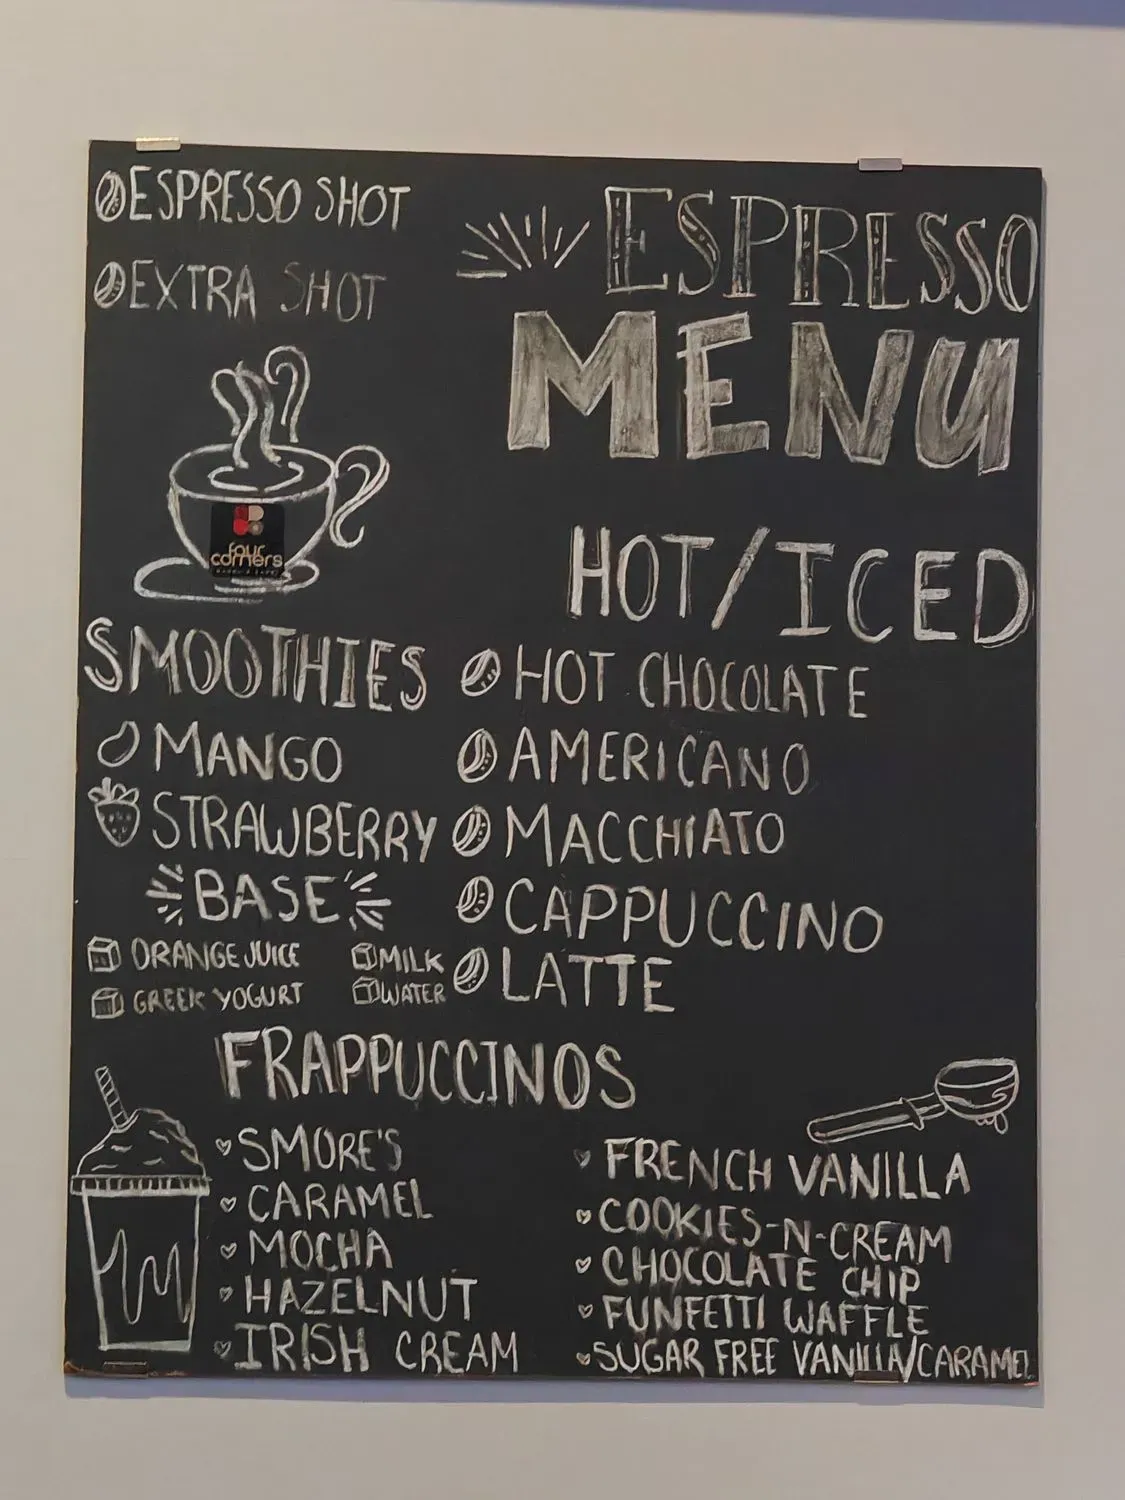 ESPRESSO SHOT
EXTRA SHOT
ESPRESSO
MENU
four
corners
HOT/ICED
HOT CHOCOLATE
AMERICANO
MACCHIATO
CAPPUCCINO
LATTE
SMOOTHIES
MANGO
STRAWBERRY
BASE
ORANGE JUICE
MILK
GREEK YOGURT
WATER
FRAPPUCCINOS
SMORE'S
CARAMEL
MOCHA
HAZELNUT
IRISH CREAM
FRENCH VANILLA
COOKIES-N-CREAM
CHOCOLATE CHIP
FUNFETTI WAFFLE
SUGAR FREE VANILLA/CARAMEL